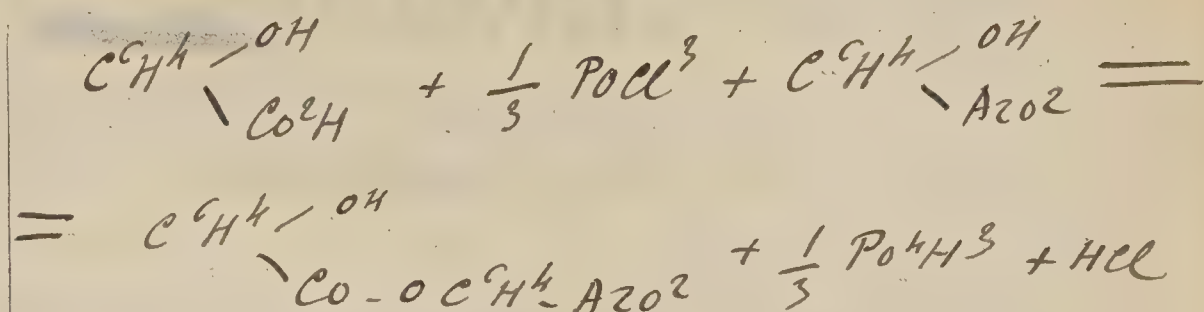 C⁶H⁴ / OH
\ Co²H + 1/3 PoCl³ + C⁶H⁴ / OH
\ Azo² =
= C⁶H⁴ / OH
\ Co - o C⁶H⁴ - Azo² + 1/3 Po⁴H³ + HCl